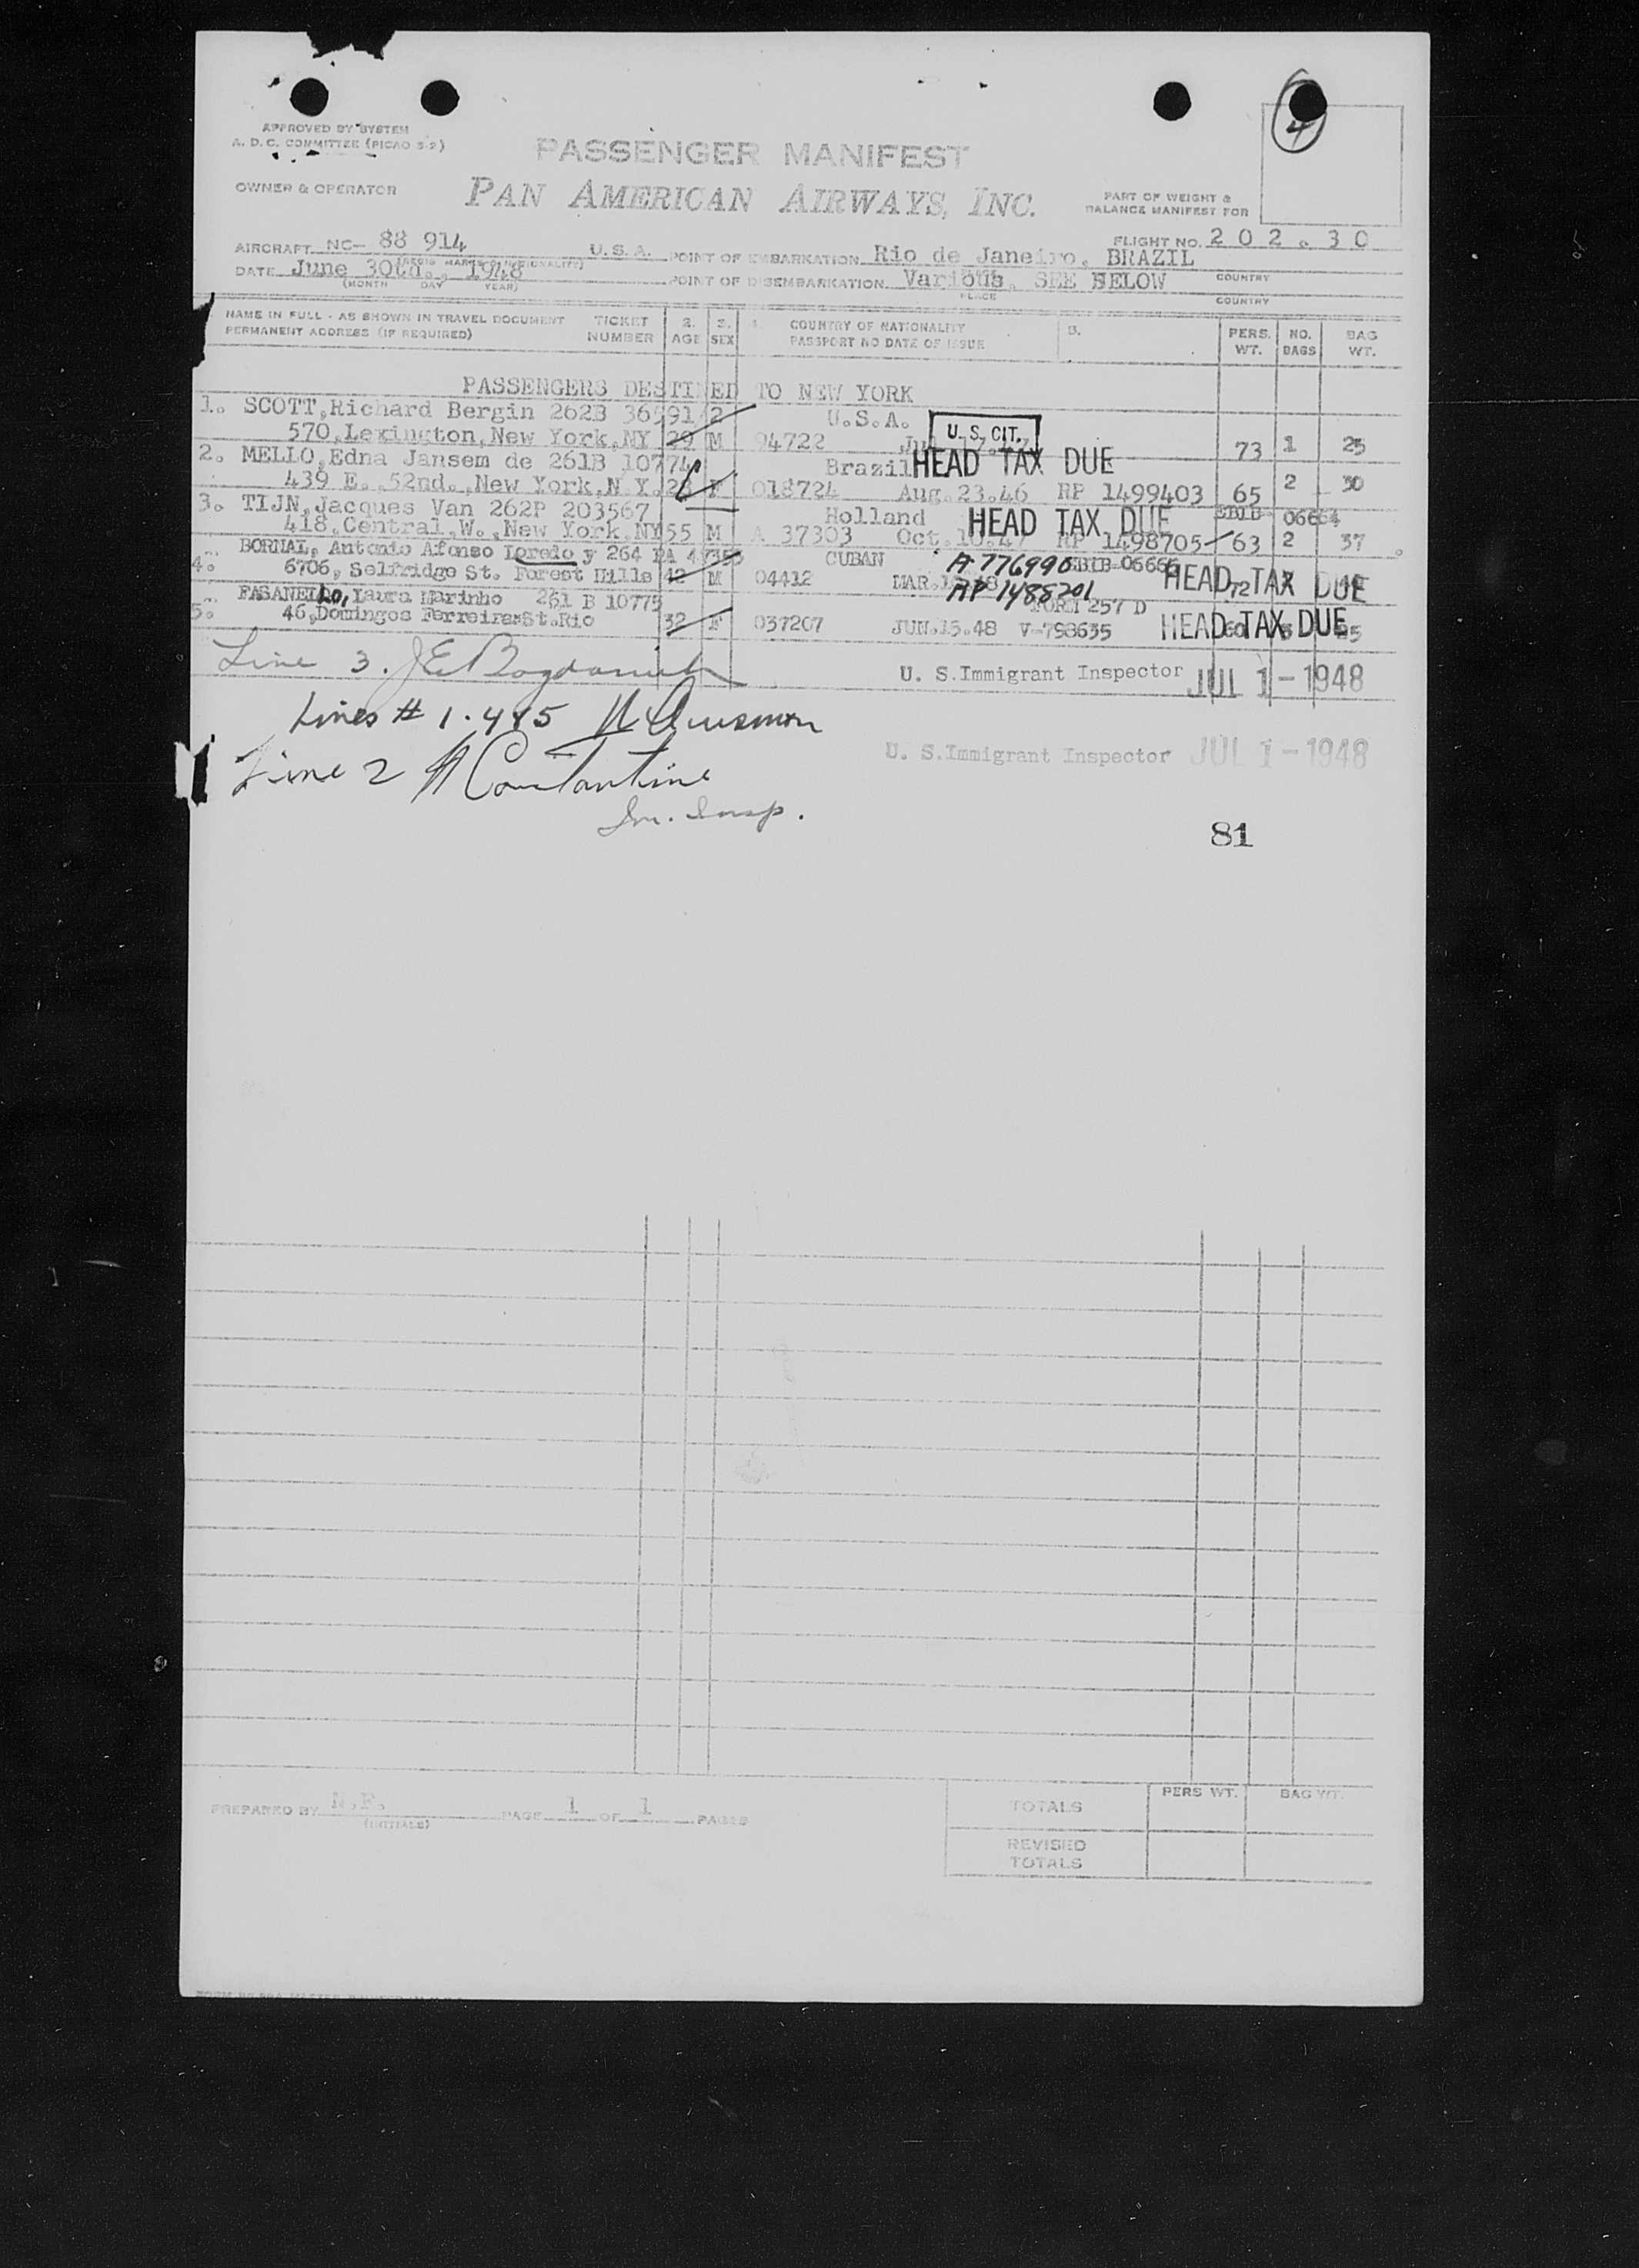 4
APPROVED BY SYSTEM
A. D. C. COMMITTEE (PICAO S-2)
PASSENGER MANIFEST
OWNER & OPERATOR PAN AMERICAN AIRWAYS, INC.
PART OF WEIGHT &
BALANCE MANIFEST FOR
AIRCRAFT NC- 88 914 U.S.A. POINT OF EMBARKATION Rio de Janeiro, BRAZIL FLIGHT NO. 202.30
DATE June 30th., 1948 POINT OF DISEMBARKATION Various, SEE BELOW COUNTRY
(MONTH DAY YEAR) PLACE COUNTRY
NAME IN FULL - AS SHOWN IN TRAVEL DOCUMENT TICKET 2. 3. COUNTRY OF NATIONALITY PERS. NO. BAG
PERMANENT ADDRESS (IF REQUIRED) NUMBER AGE SEX PASSPORT NO DATE OF ISSUE WT. BAGS WT.
PASSENGERS DESTINED TO NEW YORK
1. SCOTT,Richard Bergin 262B 365912 U.S.A. U. S. CIT.
570,Lexington,New York,NY 29 M 94722 73 1 25
2. MELLO,Edna Jansem de 261B 10774 Brazil HEAD TAX DUE
439 E. 52nd.,New York,N Y. F 018724 Aug.23.46 RP 1499403 65 2 30
3. TIJN,Jacques Van 262P 203567 Holland HEAD TAX DUE 06664
418,Central.W.,New York,NY 55 M A 37303 Oct.10.47 RP 1498705 63 2 37
BORNAL, Antonio Afonso Loredo y 264 PA CUBAN A-776990 06666 HEAD TAX DUE
4. 6706, Selfridge St. Forest Hills 42 M 04412 MAR. AP 1488201 72
FASANELLO, Laura Marinho 261 B 10775 FORM 257 D
5. 46,Domingos Ferreira St.Rio 32 F 037207 JUN.15.48 V-798635 HEAD TAX DUE
Line 3. J E Bogdanich U. S.Immigrant Inspector JUL 1-1948
Lines # 1.4 & 5
U. S.Immigrant Inspector JUL 1-1948
Line 2 Constantine
Im. Insp.
81
PREPARED BY N.F. PAGE 1 OF 1 PAGES
(INITIALS)
PERS WT. BAG WT.
TOTALS
REVISED
TOTALS